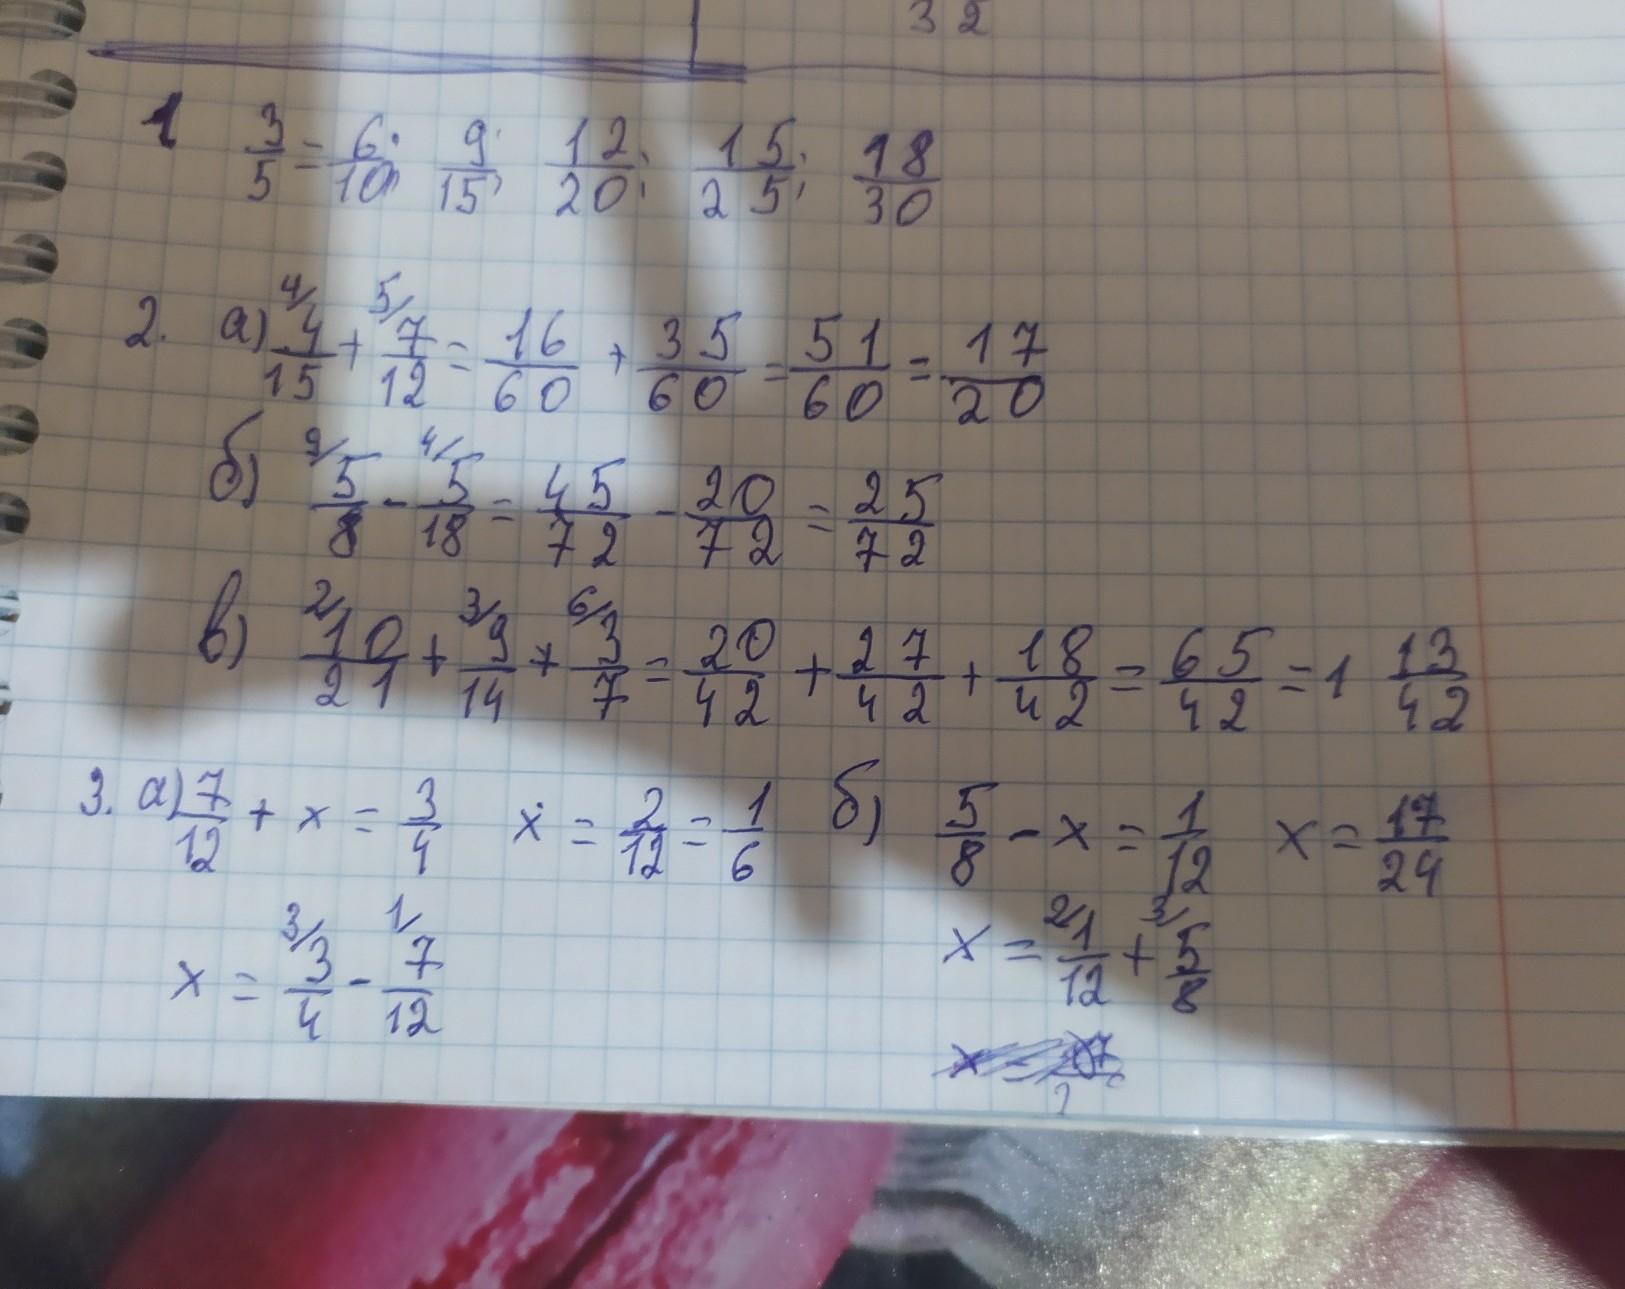 32
1 3/5 = 6/10; 9/15; 12/20; 15/25; 18/30
2. а) 4/ 4/15 + 5/ 7/12 = 16/60 + 35/60 = 51/60 = 17/20
б) 9/ 5/8 - 4/ 5/18 = 45/72 - 20/72 = 25/72
в) 2/ 10/21 + 3/ 9/14 + 6/ 3/7 = 20/42 + 27/42 + 18/42 = 65/42 = 1 13/42
3. а) 7/12 + x = 3/4 x = 2/12 = 1/6
x = 3/ 3/4 - 1/ 7/12
б) 5/8 - x = 1/12 x = 17/24
x = 2/ 1/12 + 3/ 5/8